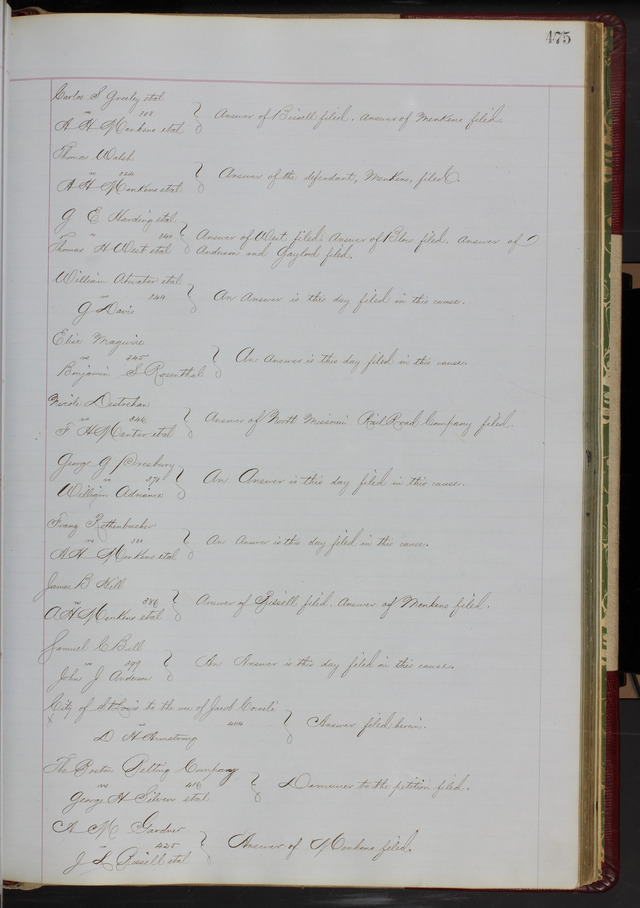 475
Carlos S Greeley etal
vs 208
A H Menkens etal
Answer of Bissell filed. Answer of Menkens filed.
Thomas Walsh
vs
A H Menkens etal
Answer of the defendant, Menkens, filed.
G E Harding etal
vs 240
Thomas H West etal
Answer of West filed. Answer of Blow filed. Answer of
Anderson and Gaylord filed.
William Atwater etal
vs 244
G Davis
An Answer is this day filed in this cause.
Elise Maguire
vs 245
Benjamin S Rosenthal
An Answer is this day filed in this cause.
Nicole
vs 246
F H Manter etal
Answer of North Missouri Rail Road Company filed.
George G Presbury
vs 271
William Adriance
An Answer is this day filed in this cause.
Franz Rothenbucher
vs
A H Menkens etal
An Answer is this day filed in this cause.
James B Hill
vs 386
A H Menkens etal
Answer of Bissell filed. Answer of Menkens filed.
Samuel C Bell
vs 399
John J Anderson
An Answer is this day filed in this cause.
City of St Louis to the use of Jacob
vs 404
D H Armstrong
Answer filed herein.
The Boston Belting Company
vs 416
George H Silver etal
Demurrer to the petition filed.
A M Gardner
vs 425
J L Bissell etal
Answer of Menkens filed.